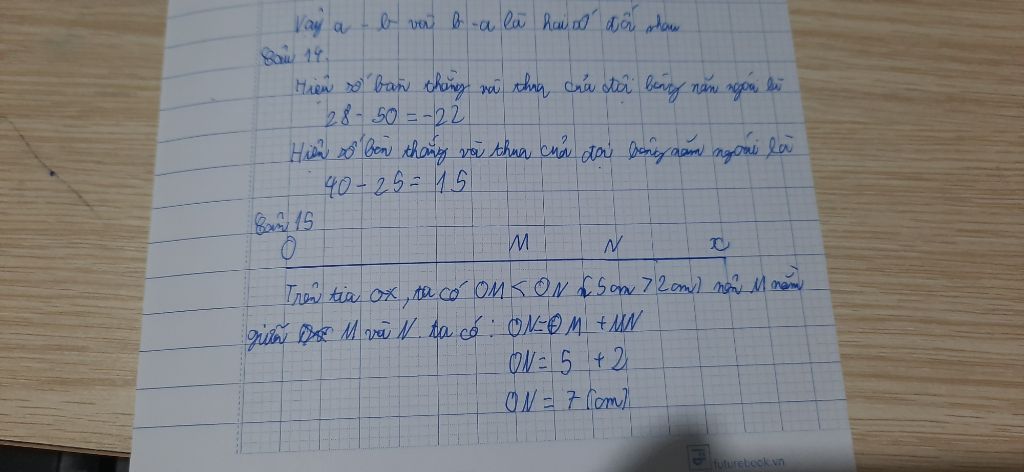 Vậy a - b và b - a là hai số đối nhau
Bài 14.
Hiệu số bàn thắng và thua của đội bóng năm ngoái là
28 - 50 = -22
Hiệu số bàn thắng và thua của đội bóng năm ngoái là
40 - 25 = 15
Bài 15
O M N x
Trên tia Ox, ta có OM < ON (5cm > 2cm) nên M nằm
giữa M và N. ta có: ON = OM + MN
ON = 5 + 2
ON = 7 (cm)
futurebook.vn